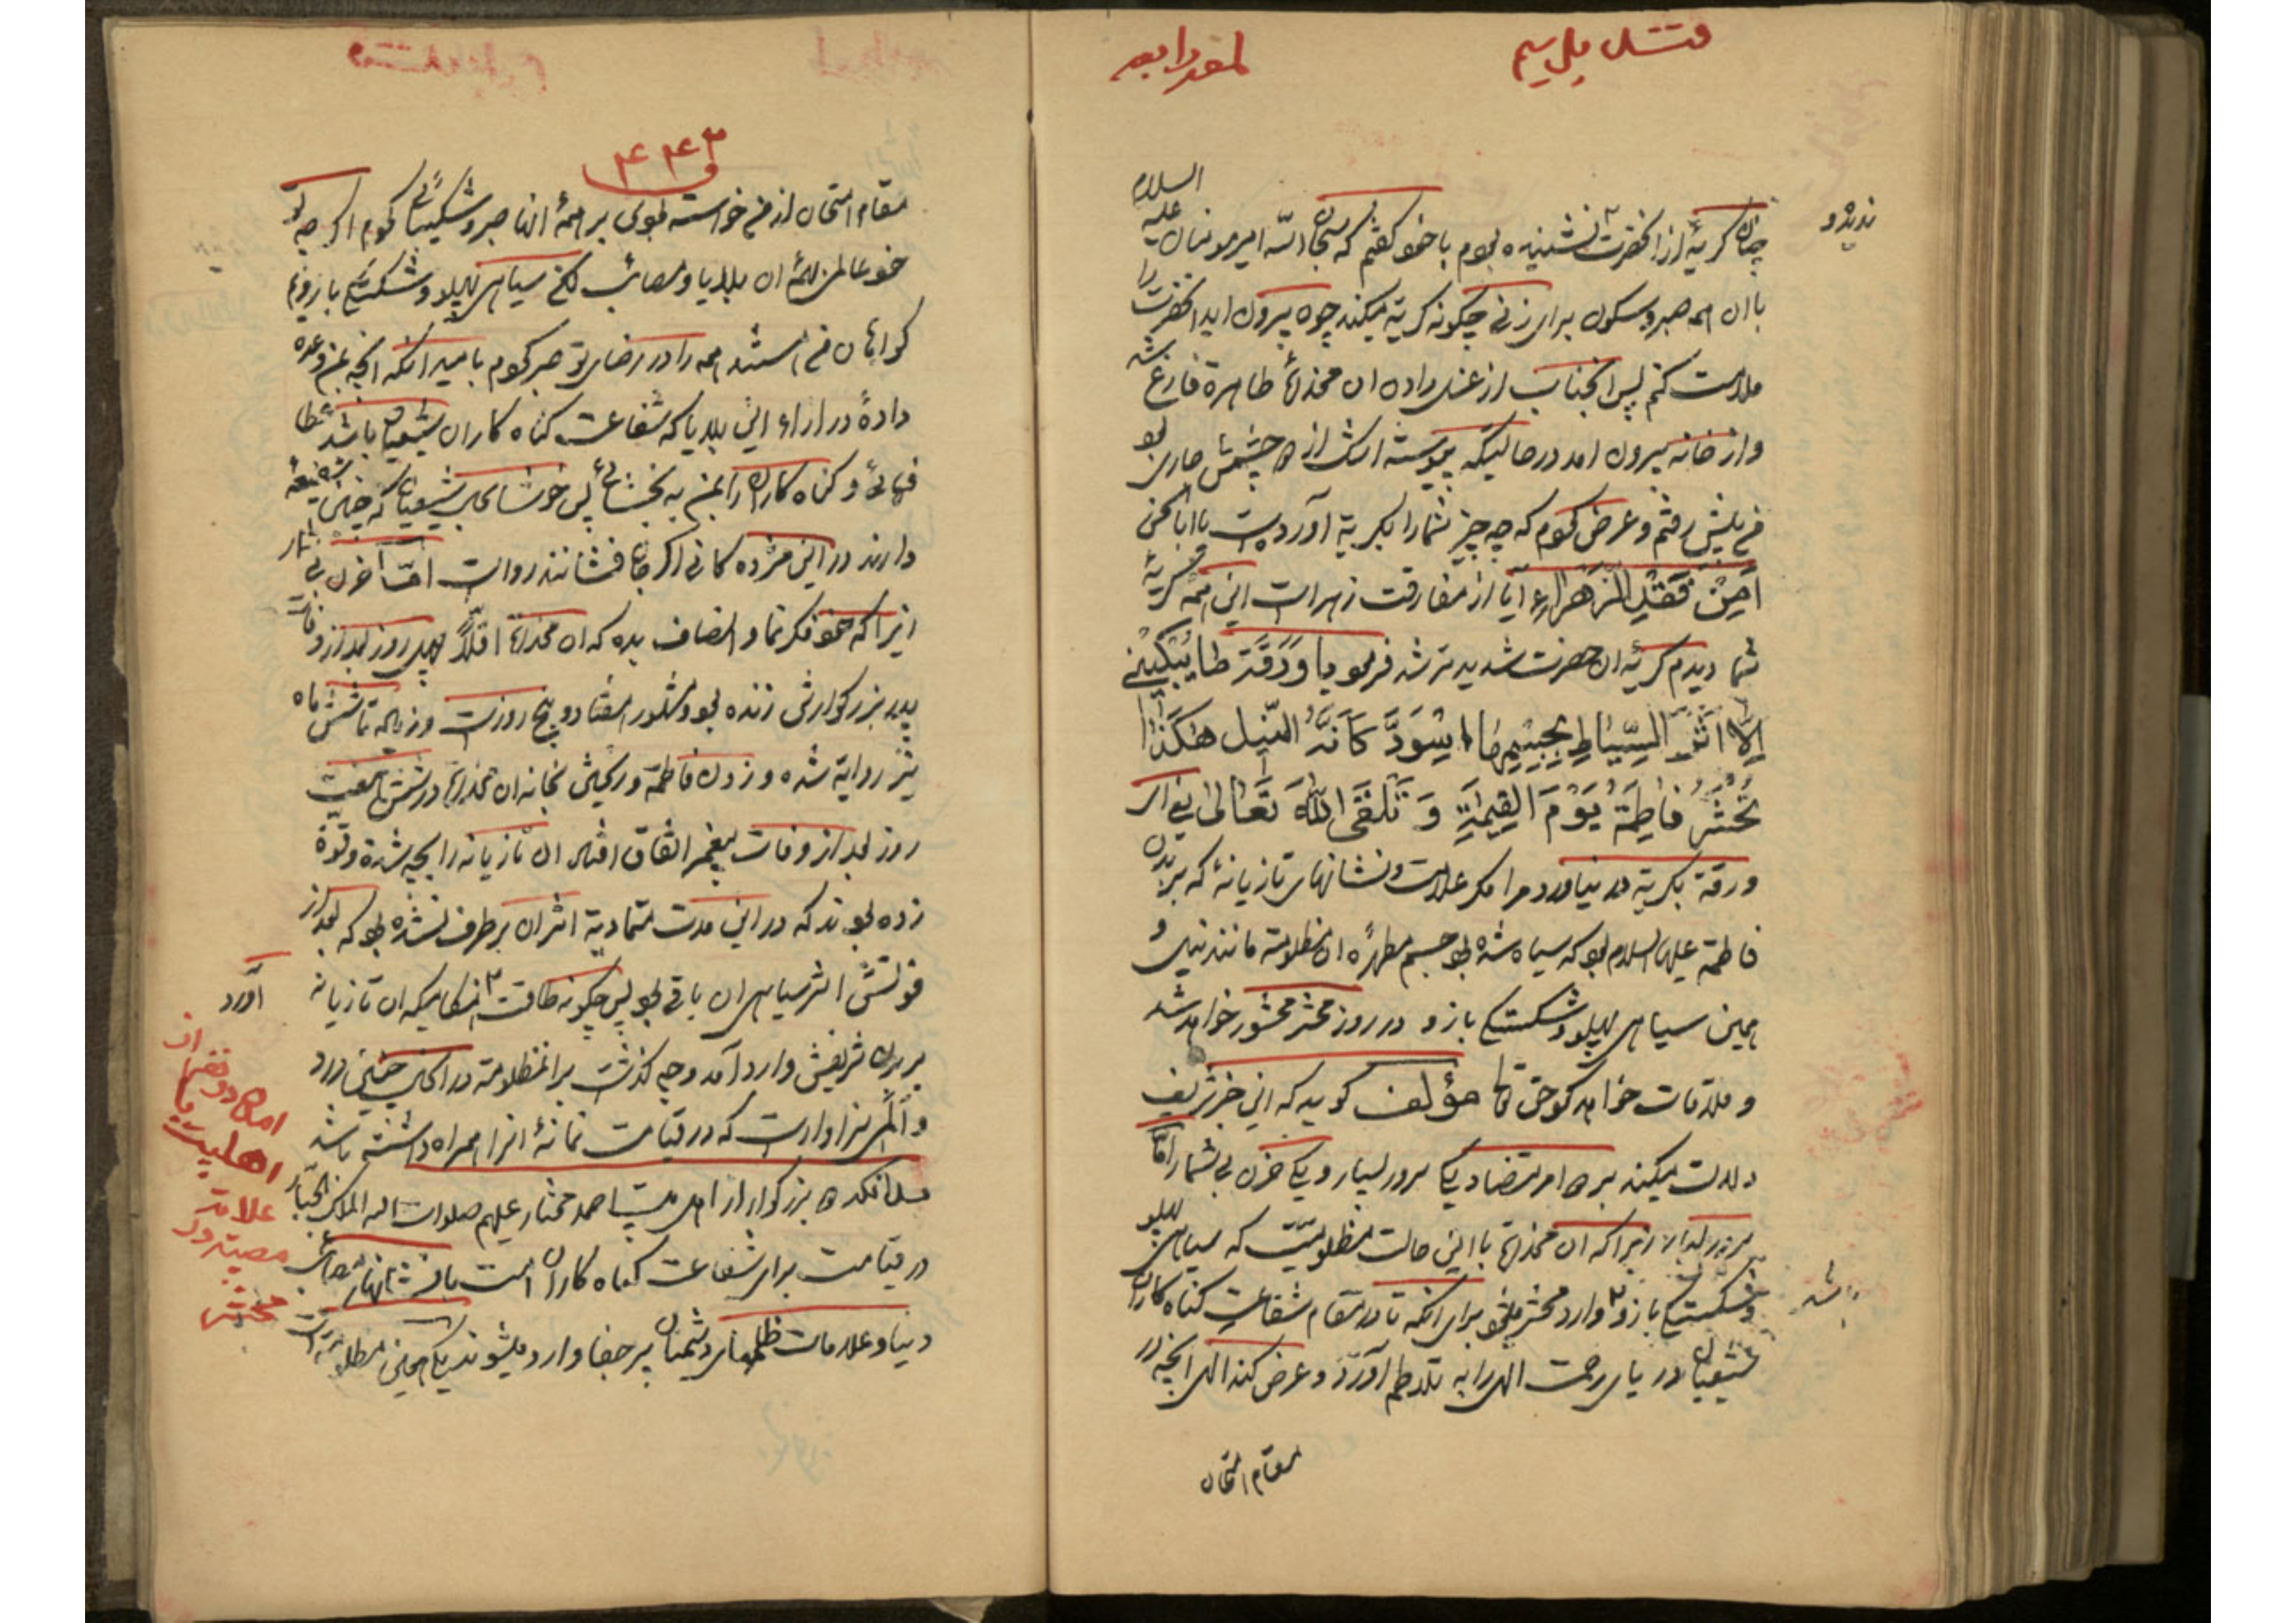 چنان گریهٔ از انحضرت نشنیده بودم با خود گفتم که سبحان الله امیر مومنان علیه السلام
با ان همه صبر و سکون برای زنی چگونه گریه میکند چون بیرون اید انحضرت را
ملامت کنم پس انجناب از غسل دادن ان مخدرهٔ طاهرة فارغ شد
و از خانه بیرون امد در حالیکه پیوسته اشک از چشمش جاری بود
من پیش رفتم و عرض کردم که چه چیز شما را بگریه آورده است یا ابا الحسن
اَمِنْ فَقْدِ الزَّهْراءِ آیا از مفارقت زهرا است این همه گریهٔ
شما دیدم گریهٔ ان حضرت شدید تر شد فرمود یا وَرَقَة ما یُبْکینی
اِلّا اَثَرُ السِّیاطِ بِجِسْمِها اِسْوَدَّ کَاَنَّهُ النّیل هکَذا
تُحْشَرُ فاطِمَةُ یَوْمَ القِیمَةِ وَ تَلْقَی اللهَ تَعالی یعنی ای
ورقة بگریه در نیاورد مرا مگر علامت و نشانهای تازیانهٔ که بر بدن
فاطمة علیها السلام بود که سیاه شده بود جسم مطهرهٔ ان مظلومة مانند نیل و
همین سیاهی پهلو و شکستگی بازو در روز محشر محشور خواهد شد
و ملاقات خواهد کرد حق تعالی مؤلف گوید که این خبر شریف
دلالت میکند بر دو امر متضاد یکی سرور بسیار و یکی حزن بی شمار امّا
سرور بسیار زیرا که ان مخدرة با این حالت مظلومیّت که سیاهی پهلو
و شکستگی بازو وارد محشر میشود برای انکه تا در مقام شفاعت گناه کاران
شیعیان دریای رحمت الهی را به تلاطم آورد و عرض کند الهی انچه در
مقام امتحان
۴۴۳
مقام امتحان از من خواسته بودی بر همهٔ انها صبر و شکیبائی کردم اگر چه تو
خود عالمی همهٔ ان بلایا و مصائب لکن سیاهی پهلو و شکستگی بازویم
گواهان من هستند همه را در رضای تو صبر کردم بامید انکه انچه بمن وعده
دادهٔ در ازاء این بلایا که شفاعت گناه کاران شیعیان باشد عطا
فرمائی و گناه کاران را بمن به بخشائی پس خوشا بحال شیعیان که چنین شفیعهٔ
دارند در این مژده گانی اگر جان فشانند رواست امّا حزن بی شمار
زیرا که خود فکر نما و انصاف بده که ان مخدرة اقلاً چهل روز بعد از وفات
پدر بزرگوارش زنده بود و مشهور هفتاد و پنج روز است و زیاده تا شش ماه
نیز روایة شده و زدن فاطمة و ریختن بخانه ان مخدرة در شش یا هفت
روز بعد از وفات پیغمبر اتفاق افتاد ان تازیانه را بچه شدة و قوة
زده بودند که در این مدت متمادیة اثر ان بر طرف نشده بود که بعد از
فوتش اثر سیاهی ان باقی بود پس چگونه طاقت آورد هنگامیکه ان تازیانه
بر بدن شریفش وارد آمد و چه گذشت بر انمظلومة در انحال چنین درد
و المی سزاوار است که در قیامت نمانهٔ انرا همراه داشته باشد
بدانکه دو بزرگوار از اهل بیت احمد مختار علیهم صلوات الله الملک الجبّار
در قیامت برای شفاعت گناه کاران امت با نشانهای مصائب
دنیا و علامات ظلمهای دشمنان پر جفا وارد میشوند یکی همین مظلومة است
اهلبیت
علامت
محشر